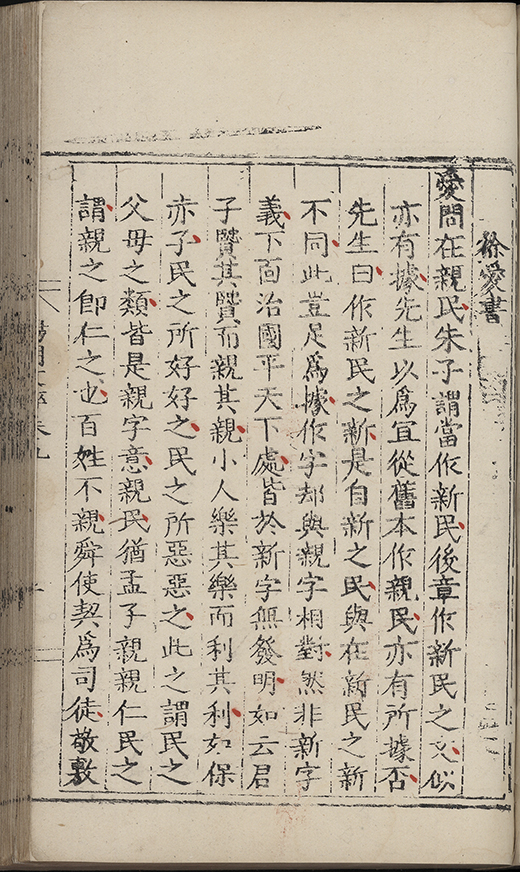 徐愛書
愛問在親民朱子謂當作新民後章作新民之文似
亦有據先生以爲宜從舊本作親民亦有所據否
先生曰作新民之新是自新之民與在新民之新
不同此豈足爲據作字却與親字相對然非新字
義下面治國平天下處皆於新字無發明如云君
子賢其賢而親其親小人樂其樂而利其利如保
赤子民之所好好之民之所惡惡之此之謂民之
父母之類皆是親字意親民猶孟子親親仁民之
謂親之卽仁之也百姓不親舜使契爲司徒敬敷